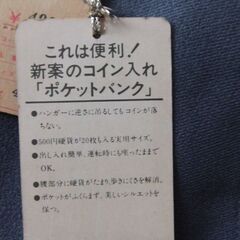 これは便利!
新案のコイン入れ
「ポケットバンク」
●ハンガーに逆さに吊るしてもコインが
落ちない。
●500円硬貨が20枚も入る実用サイズ。
●出し入れ簡単、運転時にも座ったままで
OK。
●腰部分に硬貨がたまり、歩きにくさを解消。
●ポケットがふくらまず、美しいシルエットを
保つ。